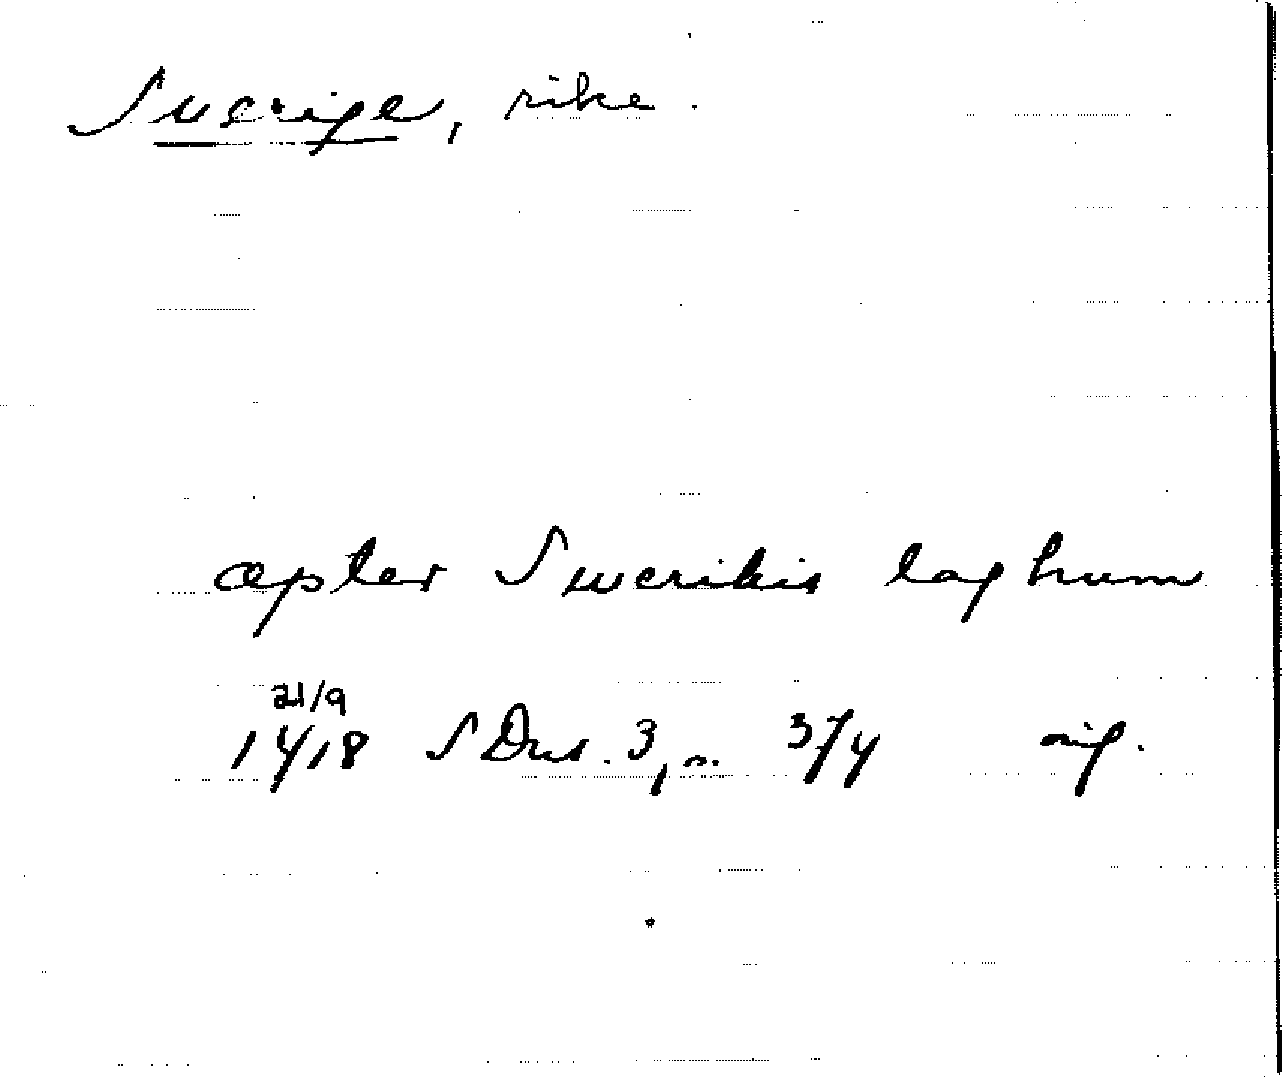 Sverige, rike.
æpter Swerikis laghum
21/9
1418 SDns. 3, s. 374 orig.